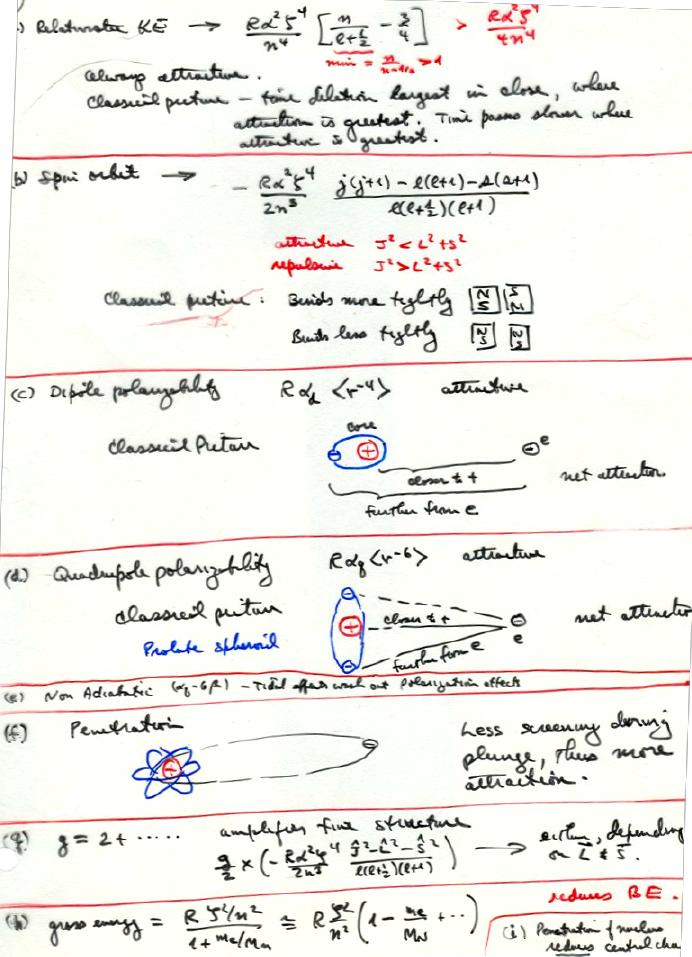 ) Relativistic KE → Rα²ζ⁴/n⁴ [n/(ℓ+½) − 3/4] > Rα²ζ⁴/4n⁴
min = n/(n−1/2) > 1
always attractive.
Classical picture – time dilation largest in close, where
attraction is greatest. Time passes slower where
attraction is greatest.
(b) Spin orbit → − Rα²ζ⁴/2n³ j(j+1) − ℓ(ℓ+1) − s(s+1) / ℓ(ℓ+½)(ℓ+1)
attractive J² < L²+S²
repulsive J² > L²+S²
Classical picture: Binds more tightly N S S N
Binds less tightly N S N S
(c) Dipole polarizability Rα_d <r⁻⁴> attractive
core
Classical Picture − + − e
closer to + net attraction
further from e
(d.) Quadrupole polarizability Rα_q <r⁻⁶> attractive
Classical picture − closer to + − net attractio
Prolate spheroid + e
− further from e
(e) Non Adiabatic (α_q−6β) – Tidal effects wash out Polarization effects
(f) Penetration Less screening during
+ − plunge, thus more
attraction.
(g) g = 2 + ..... amplifies fine structure either, depending
g/2 × (− Rα²ζ⁴/2n³ Ĵ²−L̂²−Ŝ² / ℓ(ℓ+½)(ℓ+1)) → on L & S.
reduces BE.
(h) gross energy = R ζ²/n² / 1+me/MN ≅ R ζ²/n² (1 − me/MN + ··)
(i) Penetration of nucleus
reduces central cha